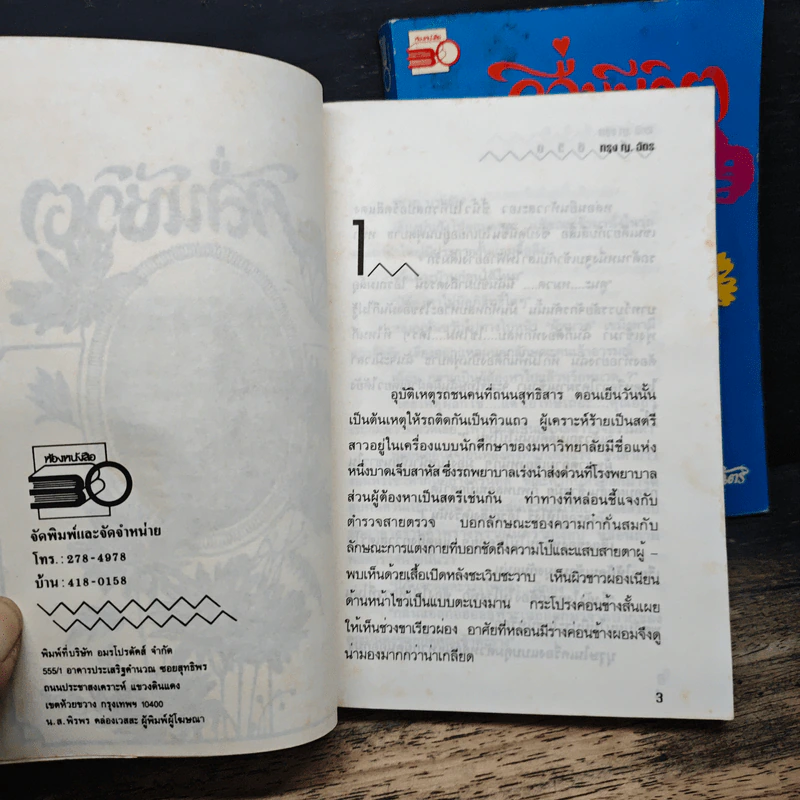 ห้องหนังสือ
36
จัดพิมพ์และจัดจำหน่าย
โทร. : 278-4978
บ้าน : 418-0158
พิมพ์ที่บริษัท อมรโปรดัคส์ จำกัด
555/1 อาคารประเสริฐคำนวณ ซอยสุทธิพร
ถนนประชาสงเคราะห์ แขวงดินแดง
เขตห้วยขวาง กรุงเทพฯ 10400
น.ส.พิรพร คล่องเวสสะ ผู้พิมพ์ผู้โฆษณา
กรุง ญ. ฉัตร
1
อุบัติเหตุรถชนคนที่ถนนสุทธิสาร ตอนเย็นวันนั้น
เป็นต้นเหตุให้รถติดกันเป็นทิวแถว ผู้เคราะห์ร้ายเป็นสตรี
สาวอยู่ในเครื่องแบบนักศึกษาของมหาวิทยาลัยมีชื่อแห่ง
หนึ่งบาดเจ็บสาหัส ซึ่งรถพยาบาลเร่งนำส่งด่วนที่โรงพยาบาล
ส่วนผู้ต้องหาเป็นสตรีเช่นกัน ท่าทางที่หล่อนชี้แจงกับ
ตำรวจสายตรวจ บอกลักษณะของความก๋ากั่นสมกับ
ลักษณะการแต่งกายที่บอกชัดถึงความโป๊และแสบสายตาผู้ –
พบเห็นด้วยเสื้อเปิดหลังชะเวิบชะวาบ เห็นผิวขาวผ่องเนียน
ด้านหน้าไขว้เป็นแบบตะเบงมาน กระโปรงค่อนข้างสั้นเผย
ให้เห็นช่วงขาเรียวผ่อง อาศัยที่หล่อนมีร่างค่อนข้างผอมจึงดู
น่ามองมากกว่าน่าเกลียด
3
ห้องหนังสือ